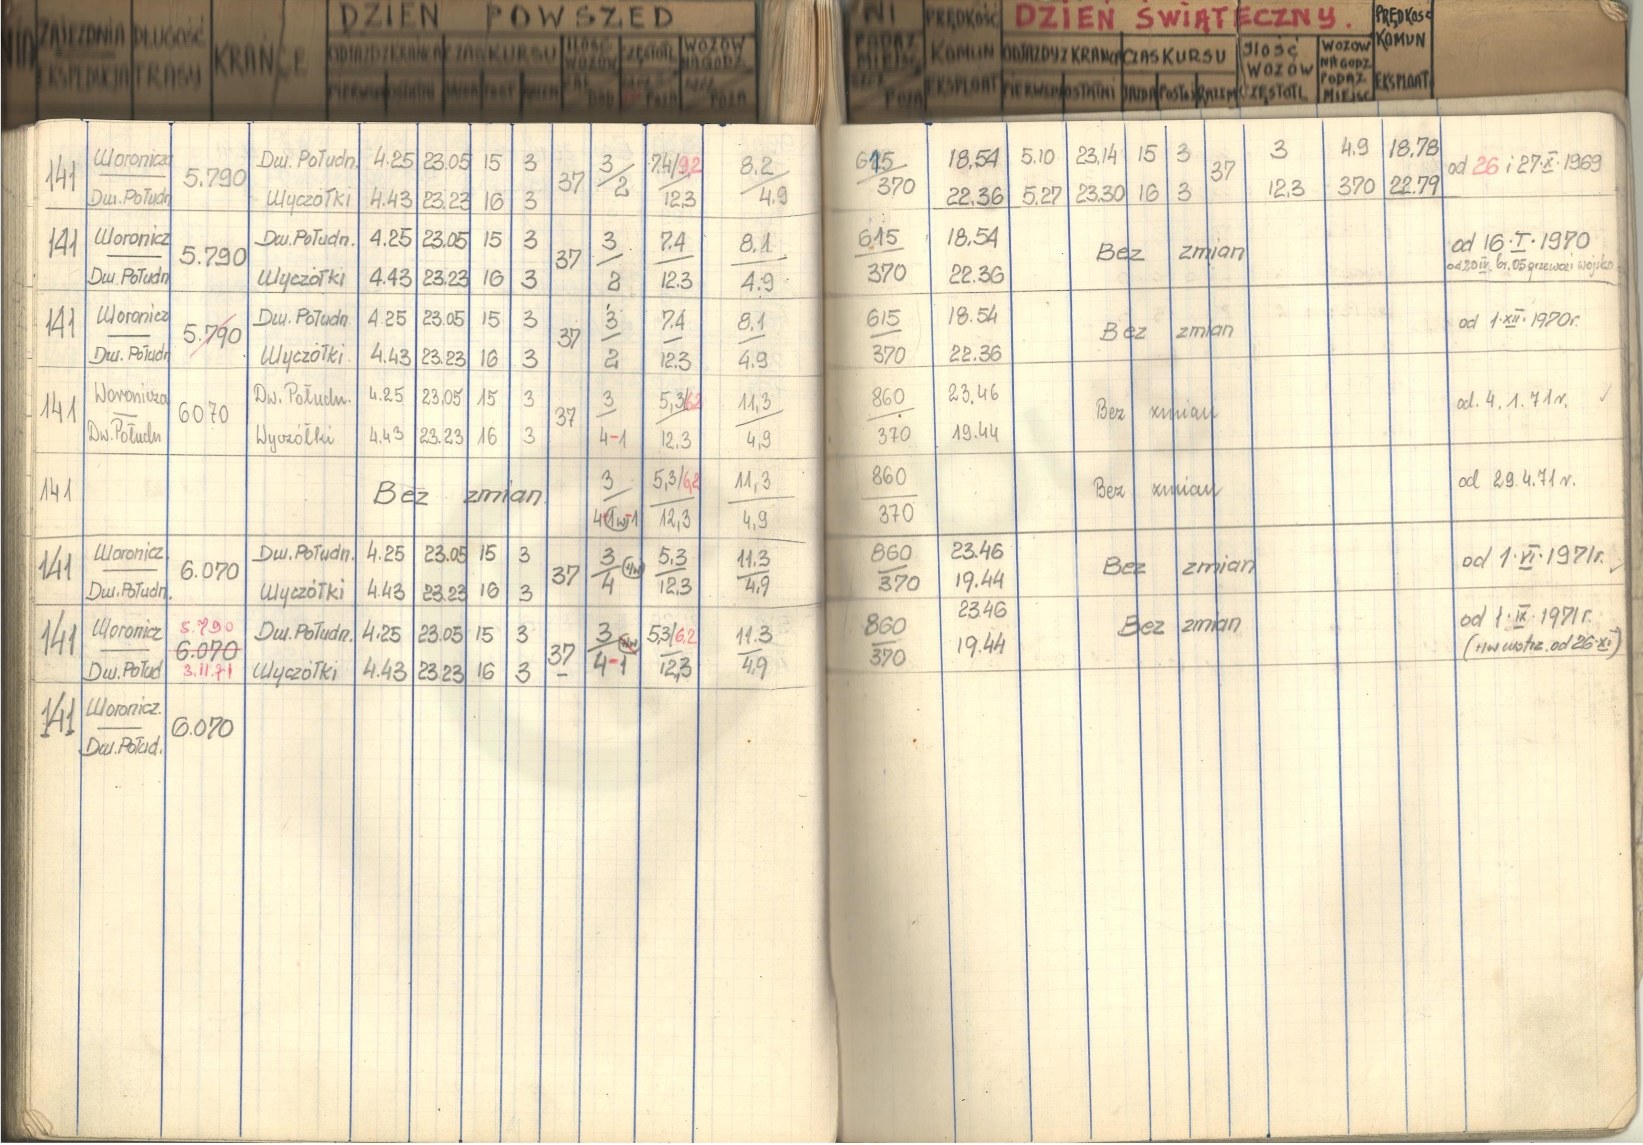 ZAJEZDNIA DŁUGOŚĆ KRAŃCE DZIEŃ POWSZED
EKSPEDYCJA TRASY
ODJAZDY Z KRAŃCA CZAS KURSU ILOŚĆ WOZÓW CZĘSTOTL WOZÓW NA GODZ
NI PRĘDKOŚĆ DZIEŃ ŚWIĄTECZNY. PRĘDKOŚĆ
PODAŻ MIEJSC KOMUN ODJAZDY Z KRAŃCA CZAS KURSU ILOŚĆ WOZÓW WOZÓW NA GODZ KOMUN
EKSPLOAT PIERWSZY OSTATNI JAZDA POSTÓJ RAZEM CZĘSTOTL PODAŻ MIEJSC EKSPLOAT
141 Woronicz 5.790 Dw. Połudn. 4.25 23.05 15 3 37 3 7.4/9,2 8.2 615 18,54 5.10 23,14 15 3 37 3 4.9 18,78 od 26 i 27·X·1969
Dw. Połudn Wyczółki 4.43 23.23 16 3 2 12.3 4.9 370 22.36 5,27 23.30 16 3 12,3 370 22.79
141 Woronicz 5.790 Dw. Połudn. 4.25 23.05 15 3 37 3 7.4 8.1 615 18.54 Bez zmian od 16·I·1970
Dw. Połudn Wyczółki 4.43 23.23 16 3 2 12.3 4.9 370 22.36
141 Woronicz 5.790 Dw. Połudn 4.25 23.05 15 3 37 3 7.4 8.1 615 18.54 Bez zmian od 1·XII·1970r.
Dw. Połudn Wyczółki 4.43 23.23 16 3 2 12.3 4.9 370 22.36
141 Woronicza 6070 Dw. Połudn. 4.25 23.05 15 3 37 3 5,3/6,2 11,3 860 23,46 Bez zmian od. 4. 1. 71 r.
Dw. Połudn Wyczółki 4.43 23.23 16 3 4-1 12.3 4,9 370 19.44
141 Bez zmian 3 5,3/6,2 11,3 860 Bez zmian od 29.4.71 r.
12,3 4,9 370
141 Woronicz. 6.070 Dw. Połudn. 4.25 23.05 15 3 37 3 5,3 11.3 860 23.46 Bez zmian od 1·VI·1971r.
Dw. Połudn. Wyczółki 4.43 23.23 16 3 4 12.3 4,9 370 19.44
141 Woronicz 5.790 6.070 Dw. Połudn. 4.25 23.05 15 3 37 3 5,3/6,2 11.3 860 23.46 Bez zmian od 1·IX·1971r.
Dw. Połud 3.11.71 Wyczółki 4.43 23.23 16 3 4-1 12,3 4.9 370 19.44
141 Woronicz. 6.070
Dw. Połud.